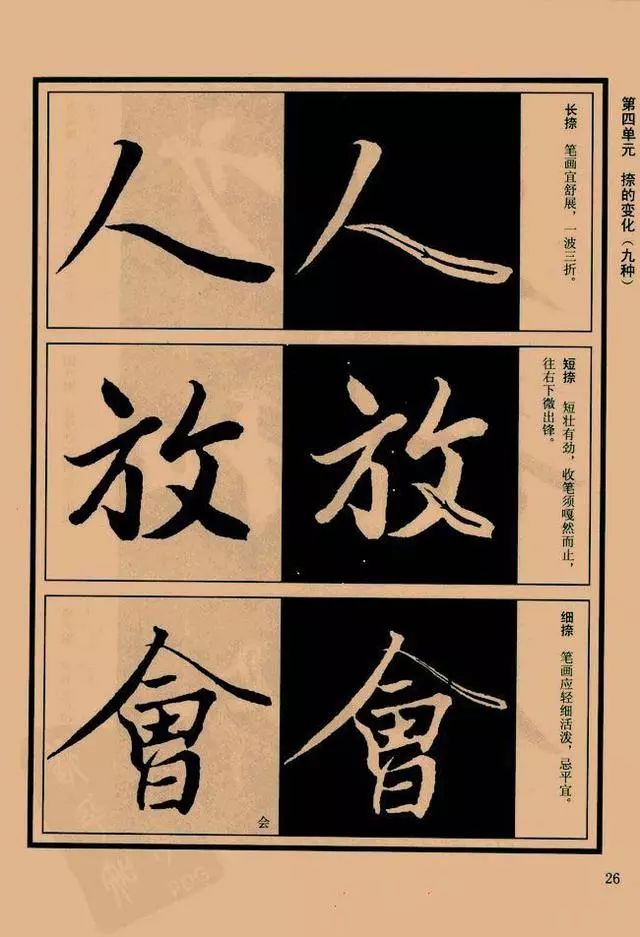 第四单元　捺的变化（九种）
长捺　笔画宜舒展，一波三折。
人
人
短捺　短壮有劲，收笔须嘎然而止，
往右下微出锋。
放
放
细捺　笔画应轻细活泼，忌平宜。
會
會
会
26